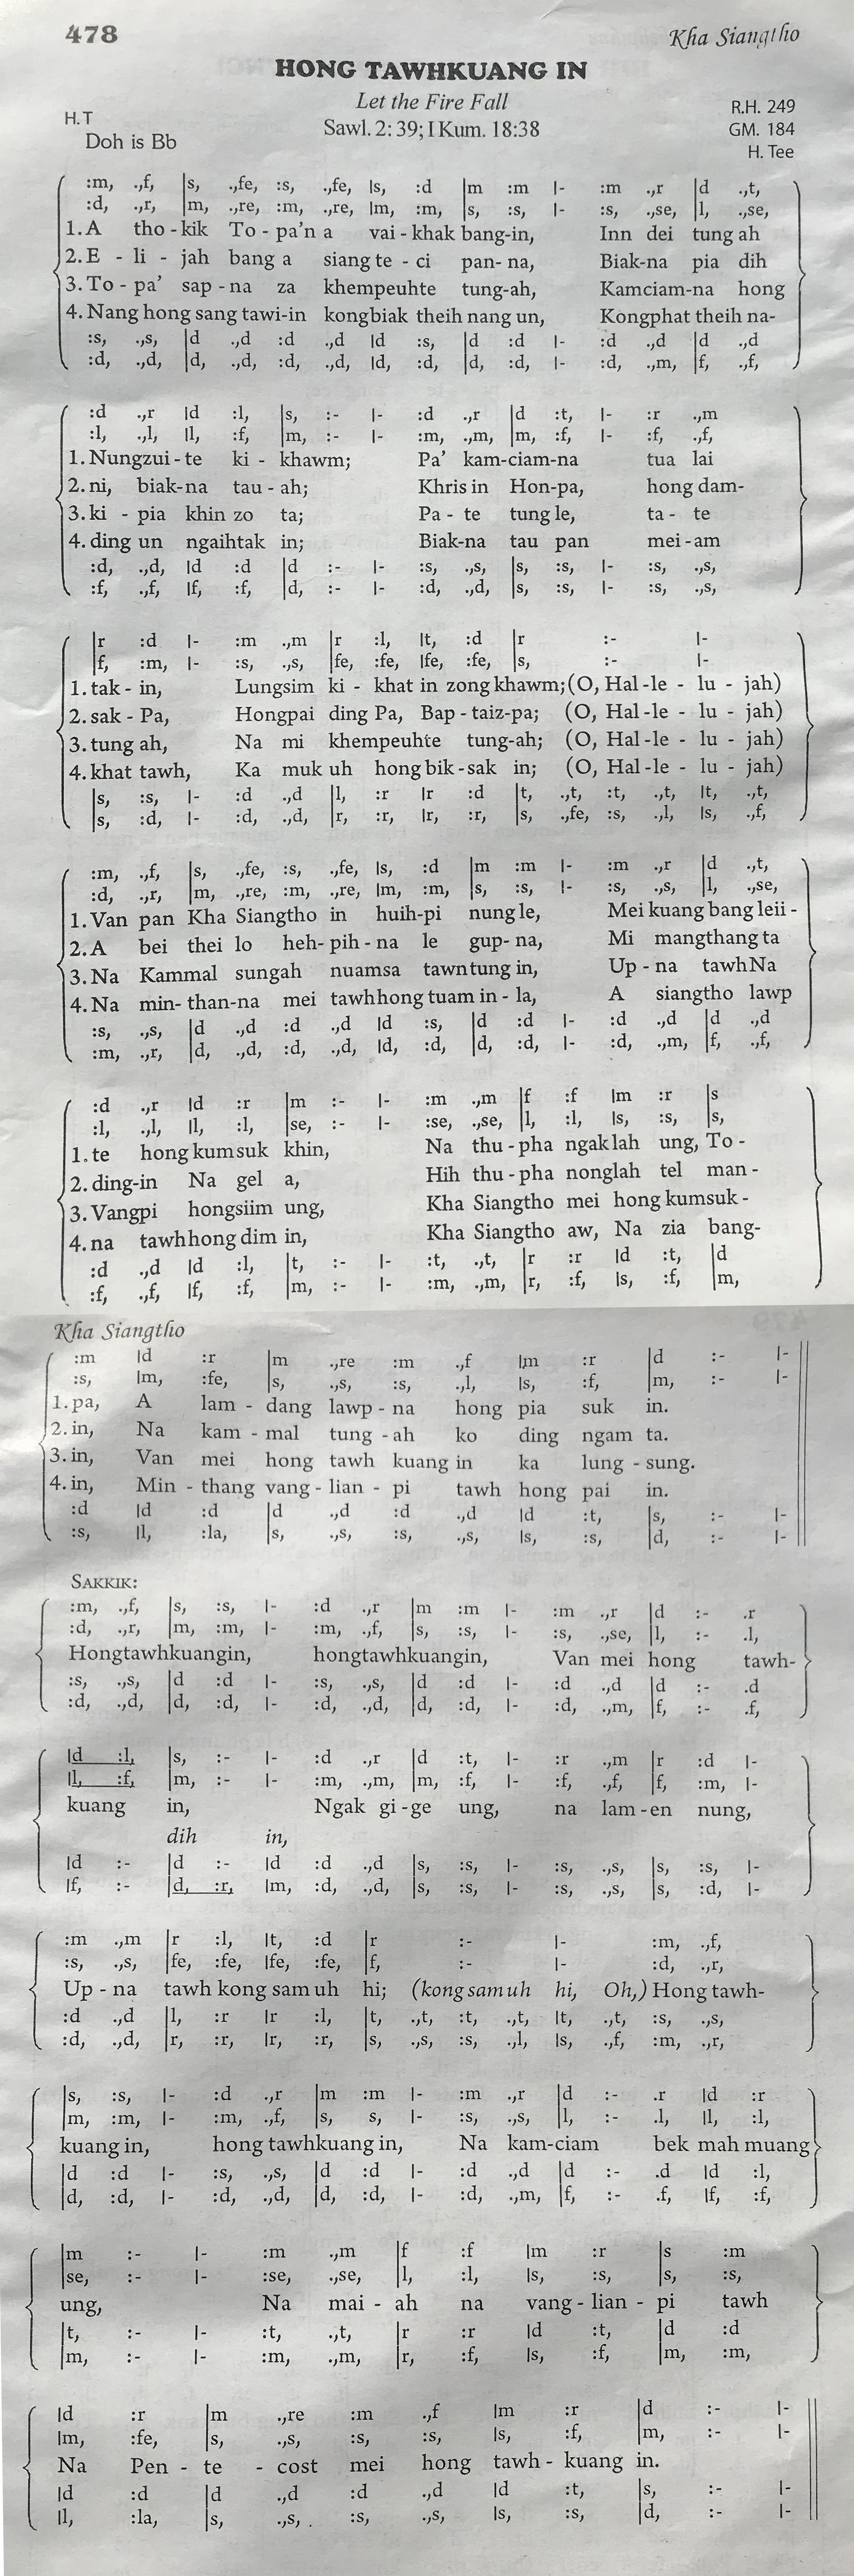 478
Kha Siangtho
HONG TAWHKUANG IN
Let the Fire Fall
H.T
Doh is Bb
Sawl. 2: 39; I Kum. 18:38
R.H. 249
GM. 184
H. Tee
:m, .,f, |s, .,fe, :s, .,fe, ls, :d |m :m l- :m .,r |d .,t,
:d, .,r, |m, .,re, :m, .,re, lm, :m, |s, :s, l- :s, .,se, |l, .,se,
1. A tho - kik To - pa'n a vai - khak bang-in, Inn dei tung ah
2. E - li - jah bang a siang te - ci pan- na, Biak-na pia dih
3. To - pa' sap - na za khempeuhte tung-ah, Kamciam-na hong
4. Nang hong sang tawi-in kongbiak theih nang un, Kongphat theih na-
:s, .,s, |d .,d :d .,d ld :s, |d :d l- :d .,d |d .,d
:d, .,d, |d, .,d, :d, .,d, ld, :d, |d, :d, l- :d, .,m, |f, .,f,
:d .,r ld :l, |s, :- l- :d .,r |d :t, l- :r .,m
:l, .,l, ll, :f, |m, :- l- :m, .,m, |m, :f, l- :f, .,f,
1. Nungzui - te ki - khawm; Pa' kam-ciam-na tua lai
2. ni, biak-na tau - ah; Khris in Hon-pa, hong dam-
3. ki - pia khin zo ta; Pa - te tung le, ta - te
4. ding un ngaihtak in; Biak-na tau pan mei - am
:d, .,d, ld :d |d :- l- :s, .,s, |s, :s, l- :s, .,s,
:f, .,f, lf, :f, |d, :- l- :d, .,d, |s, :s, l- :s, .,s,
|r :d l- :m .,m |r :l, lt, :d |r :- l-
|f, :m, l- :s, .,s, |fe, :fe, lfe, :fe, |s, :- l-
1. tak - in, Lungsim ki - khat in zong khawm; (O, Hal - le - lu - jah)
2. sak - Pa, Hongpai ding Pa, Bap - taiz-pa; (O, Hal - le - lu - jah)
3. tung ah, Na mi khempeuhte tung-ah; (O, Hal - le - lu - jah)
4. khat tawh, Ka muk uh hong bik - sak in; (O, Hal - le - lu - jah)
|s, :s, l- :d .,d |l, :r lr :d |t, .,t, :t, .,t, lt, .,t,
|s, :d, l- :d, .,d, |r, :r, lr, :r, |s, .,fe, :s, .,l, ls, .,f,
:m, .,f, |s, .,fe, :s, .,fe, ls, :d |m :m l- :m .,r |d .,t,
:d, .,r, |m, .,re, :m, .,re, lm, :m, |s, :s, l- :s, .,s, |l, .,se,
1. Van pan Kha Siangtho in huih-pi nung le, Mei kuang bang leii -
2. A bei thei lo heh- pih - na le gup- na, Mi mangthang ta
3. Na Kammal sungah nuamsa tawntung in, Up - na tawh Na
4. Na min- than-na mei tawhhong tuam in - la, A siangtho lawp
:s, .,s, |d .,d :d .,d ld :s, |d :d l- :d .,d |d .,d
:m, .,r, |d, .,d, :d, .,d, ld, :d, |d, :d, l- :d, .,m, |f, .,f,
:d .,r ld :r |m :- l- :m .,m |f :f lm :r |s
:l, .,l, ll, :l, |se, :- l- :se, .,se, |l, :l, ls, :s, |s,
1. te hong kumsuk khin, Na thu - pha ngaklah ung, To -
2. ding-in Na gel a, Hih thu - pha nonglah tel man -
3. Vangpi hongsiim ung, Kha Siangtho mei hong kumsuk -
4. na tawhhong dim in, Kha Siangtho aw, Na zia bang-
:d .,d ld :l, |t, :- l- :t, .,t, |r :r ld :t, |d
:f, .,f, lf, :f, |m, :- l- :m, .,m, |r, :f, ls, :f, |m,
Kha Siangtho
:m ld :r |m .,re :m .,f lm :r |d :- l-
:s, lm, :fe, |s, .,s, :s, .,l, ls, :f, |m, :- l-
1. pa, A lam - dang lawp - na hong pia suk in.
2. in, Na kam - mal tung - ah ko ding ngam ta.
3. in, Van mei hong tawh kuang in ka lung - sung.
4. in, Min - thang vang - lian - pi tawh hong pai in.
:d ld :d |d .,d :d .,d ld :t, |s, :- l-
:s, ll, :la, |s, .,s, :s, .,s, ls, :s, |d, :- l-
SAKKIK:
:m, .,f, |s, :s, l- :d .,r |m :m l- :m .,r |d :- .r
:d, .,r, |m, :m, l- :m, .,f, |s, :s, l- :s, .,se, |l, :- .l,
Hongtawhkuangin, hongtawhkuangin, Van mei hong tawh-
:s, .,s, |d :d l- :s, .,s, |d :d l- :d .,d |d :- .d
:d, .,d, |d, :d, l- :d, .,d, |d, :d, l- :d, .,m, |f, :- .f,
ld :l, |s, :- l- :d .,r |d :t, l- :r .,m |r :d l-
ll, :f, |m, :- l- :m, .,m, |m, :f, l- :f, .,f, |f, :m, l-
kuang in, Ngak gi - ge ung, na lam - en nung,
dih in,
ld :- |d :- ld :d .,d |s, :s, l- :s, .,s, |s, :s, l-
lf, :- |d, :r, lm, :d, .,d, |s, :s, l- :s, .,s, |s, :d, l-
:m .,m |r :l, lt, :d |r :- l- :m, .,f,
:s, .,s, |fe, :fe, lfe, :fe, |f, :- l- :d, .,r,
Up - na tawh kong sam uh hi; (kong sam uh hi, Oh,) Hong tawh-
:d .,d |l, :r lr :l, |t, .,t, :t, .,t, lt, .,t, :s, .,s,
:d, .,d, |r, :r, lr, :r, |s, .,s, :s, .,l, ls, .,f, :m, .,r,
|s, :s, l- :d .,r |m :m l- :m .,r |d :- .r ld :r
|m, :m, l- :m, .,f, |s, s, l- :s, .,s, |l, :- .l, ll, :l,
kuang in, hong tawhkuang in, Na kam-ciam bek mah muang
|d :d l- :s, .,s, |d :d l- :d .,d |d :- .d ld :l,
|d, :d, l- :d, .,d, |d, :d, l- :d, .,m, |f, :- .f, lf, :f,
|m :- l- :m .,m |f :f lm :r |s :m
|se, :- l- :se, .,se, |l, :l, ls, :s, |s, :s,
ung, Na mai - ah na vang - lian - pi tawh
|t, :- l- :t, .,t, |r :r ld :t, |d :d
|m, :- l- :m, .,m, |r, :f, ls, :f, |m, :m,
ld :r |m .,re :m .,f lm :r |d :- l-
lm, :fe, |s, .,s, :s, :s, ls, :f, |m, :- l-
Na Pen - te - cost mei hong tawh - kuang in.
ld :d |d .,d :d .,d ld :t, |s, :- l-
ll, :la, |s, .,s, . :s, .,s, ls, :s, |d, :- l-